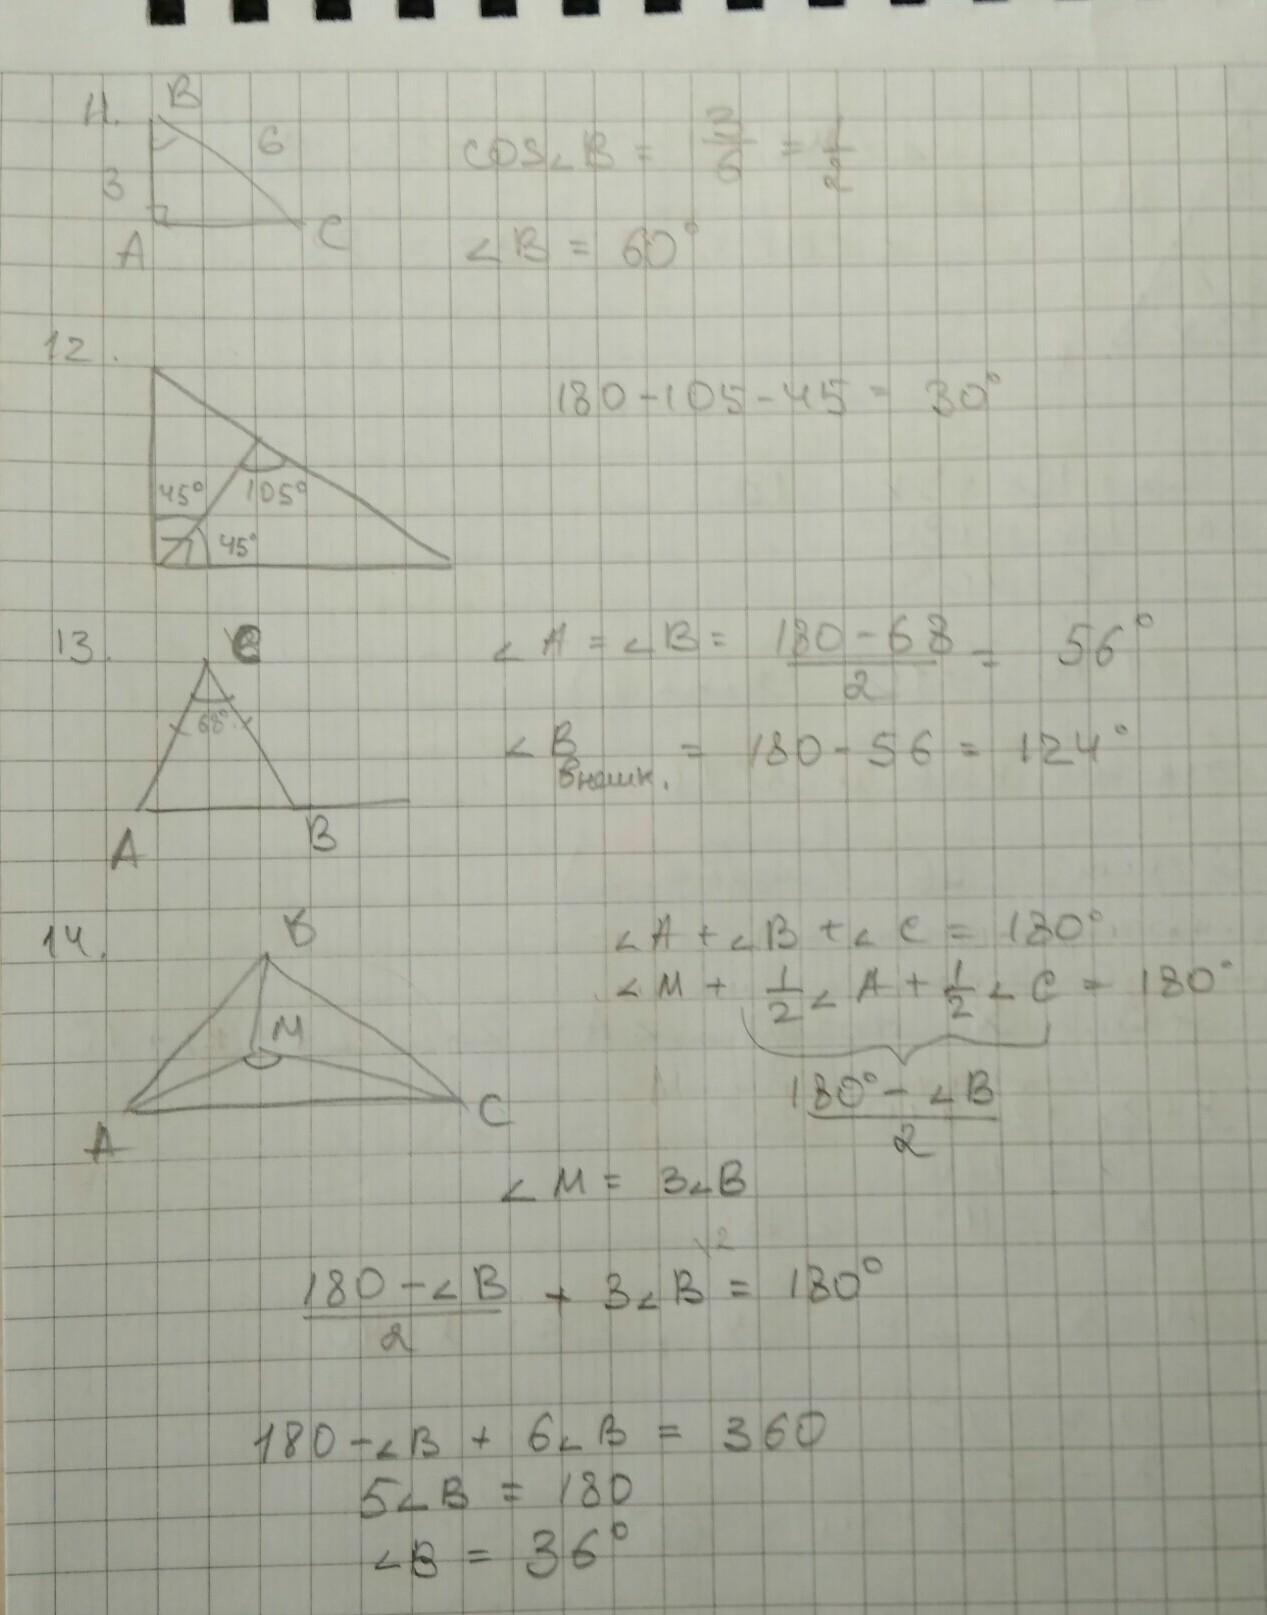 11.
B
6
3
A
C
cos∠B = 3/6 = 1/2
∠B = 60°
12.
45°
105°
45°
180-105-45 = 30°
13.
C
68°
A
B
∠A = ∠B = (180-68)/2 = 56°
∠B внешн. = 180-56 = 124°
14.
B
M
A
C
∠A + ∠B + ∠C = 180°
∠M + 1/2∠A + 1/2∠C = 180°
(180° - ∠B)/2
∠M = 3∠B
\2
(180-∠B)/2 + 3∠B = 180°
180-∠B + 6∠B = 360
5∠B = 180
∠B = 36°